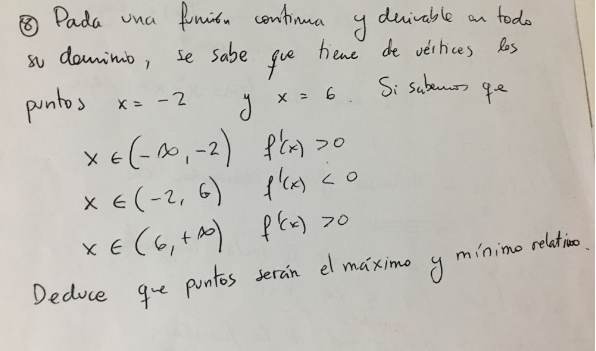 ⑧ Dada una función continua y derivable en todo
su dominio, se sabe que tiene de vértices los
puntos x = -2 y x = 6. Si sabemos que
x ∈ (-∞, -2) f'(x) > 0
x ∈ (-2, 6) f'(x) < 0
x ∈ (6, +∞) f'(x) > 0
Deduce que puntos serán el máximo y mínimo relativo.